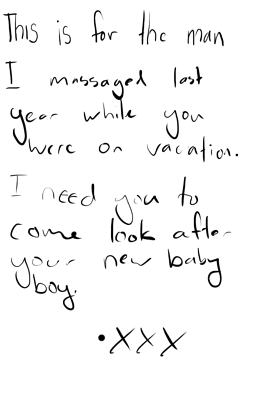 This is for the man
I massaged last
year while you
were on vacation.
I need you to
come look after
your new baby
boy.
•XXX